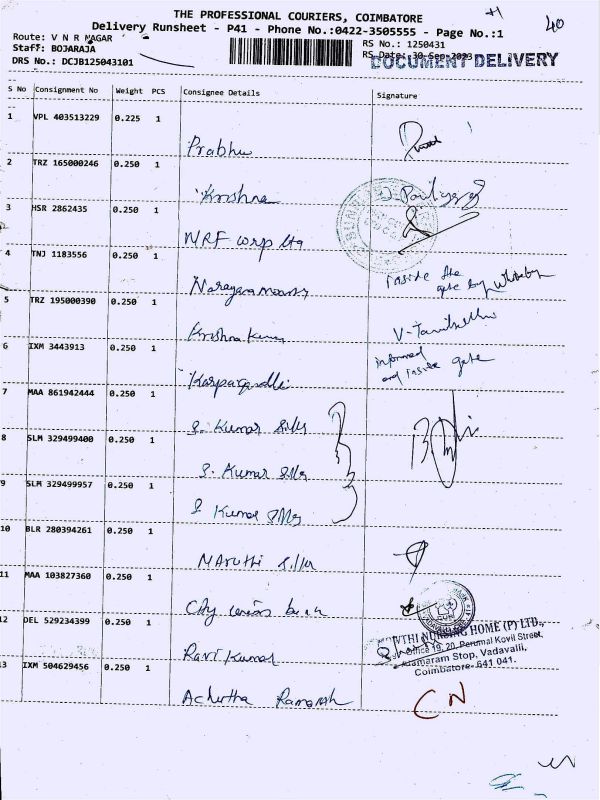 THE PROFESSIONAL COURIERS, COIMBATORE
40
Delivery Runsheet - P41 - Phone No.:0422-3505555 - Page No.:1
Route: V N R NAGAR
Staff: BOJARAJA
DRS No.: DCJB125043101
RS No.: 1250431
RS Date: 30-Sep-2023
DOCUMENT DELIVERY
S No Consignment No Weight PCS Consignee Details Signature
1 VPL 403513229 0.225 1
Prabhu
2 TRZ 165000246 0.250 1
Krishna
3 HSR 2862435 0.250 1
MRF corp ltd
4 TNJ 1183556 0.250 1
Narayanamoorthy inside the gate
5 TRZ 195000390 0.250 1
Krishna Kumar
6 IXM 3443913 0.250 1
informed and inside gate
7 MAA 861942444 0.250 1
S. Kumar Silks
8 SLM 329499400 0.250 1
S. Kumar Silks
9 SLM 329499957 0.250 1
S Kumar Silks
10 BLR 280394261 0.250 1
Maruthi
11 MAA 103827360 0.250 1
City union bank
12 DEL 529234399 0.250 1
Ravi Kumar
NURSING HOME (P) LTD.,
Office 19, 20, Perumal Kovil Street,
Stop, Vadavalli,
Coimbatore- 641 041.
13 IXM 504629456 0.250 1
CN